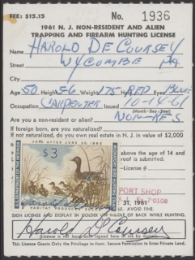 FEE: $15.15 No. 1936
1961 N. J. NON-RESIDENT AND ALIEN
TRAPPING AND FIREARM HUNTING LICENSE
Name HAROLD DECOURSEY
WYCOMBE PA.
Age 50 5-6 175 RED BLUE
CARPENTER 10-14-61
Are you a non-resident or alien? NON-RES
If foreign born, are you naturalized?
If not naturalized, do you own real estate in N. J. in value of $2,000
above the age of 14 and
roof is submitted.
$3
License
PORT SHOP
31, 1961
SIGN LICENSE AND DISPLAY IN HOLDER ON MIDDLE OF BACK WHILE HUNTING
Harold DeCoursey
This License Grants Only the Privilege to Hunt. Secure Permission to Enter Private Land.